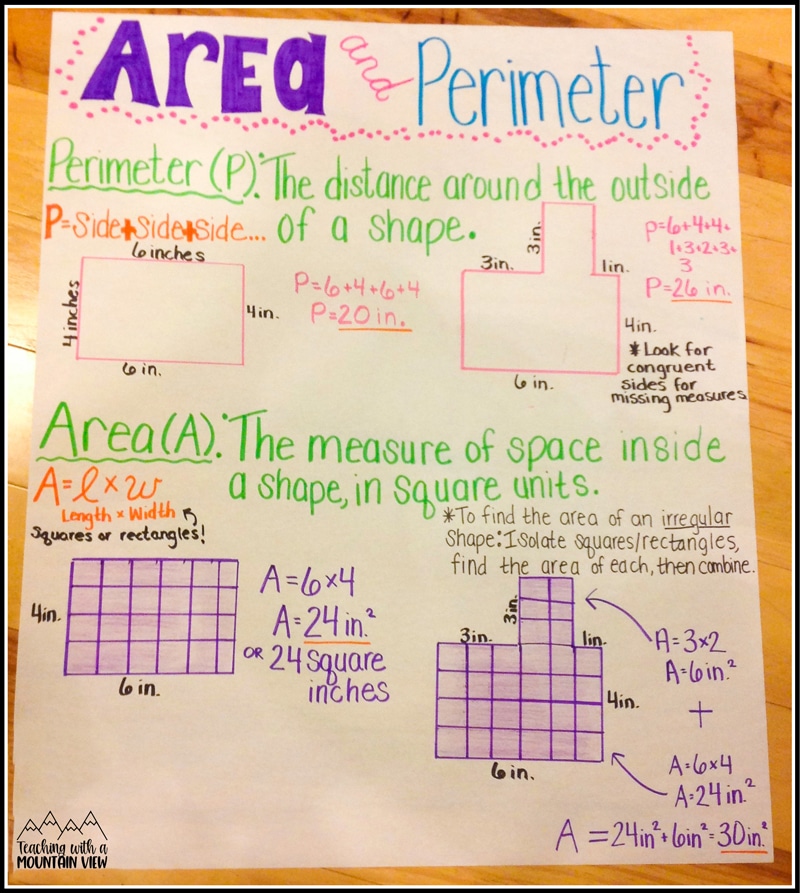 Area and Perimeter
Perimeter (P): The distance around the outside
P=Side+Side+Side... of a shape.
6 inches
4 inches
4in.
6 in.
P=6+4+6+4
P=20 in.
3in.
3in.
1in.
4in.
6 in.
P=6+4+4+
1+3+2+3+
3
P=26 in.
*Look for
congruent
sides for
missing measures
Area (A): The measure of space inside
a shape, in square units.
A=l×w
Length × Width
Squares or rectangles!
*To find the area of an irregular
Shape: Isolate squares/rectangles,
find the area of each, then combine.
4in.
6 in.
A=6×4
A=24in.²
OR 24 Square
inches
3in.
3in.
1in.
4in.
6 in.
A=3×2
A=6in.²
+
A=6×4
A=24in.²
A = 24in²+6in²=30in.²
Teaching with a
MOUNTAIN VIEW